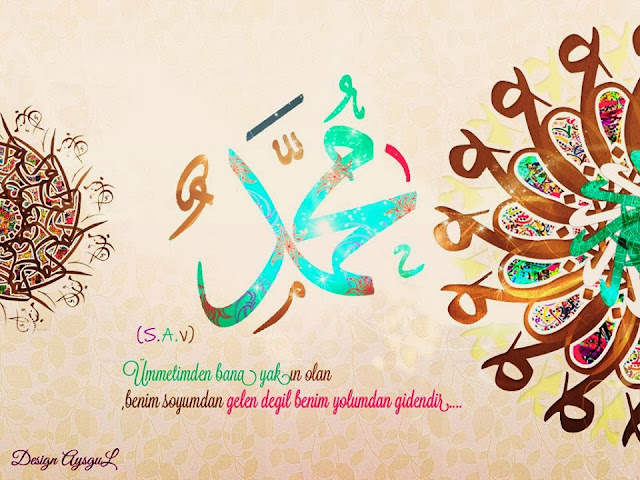 محمد
(S.A.v)
Ümmetimden bana yakın olan
,benim soyumdan gelen degil benim yolumdan gidendir....
Design AysguL